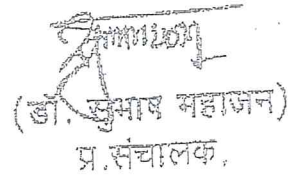 (डॉ. सुभाष महाजन)
प्र.संचालक.